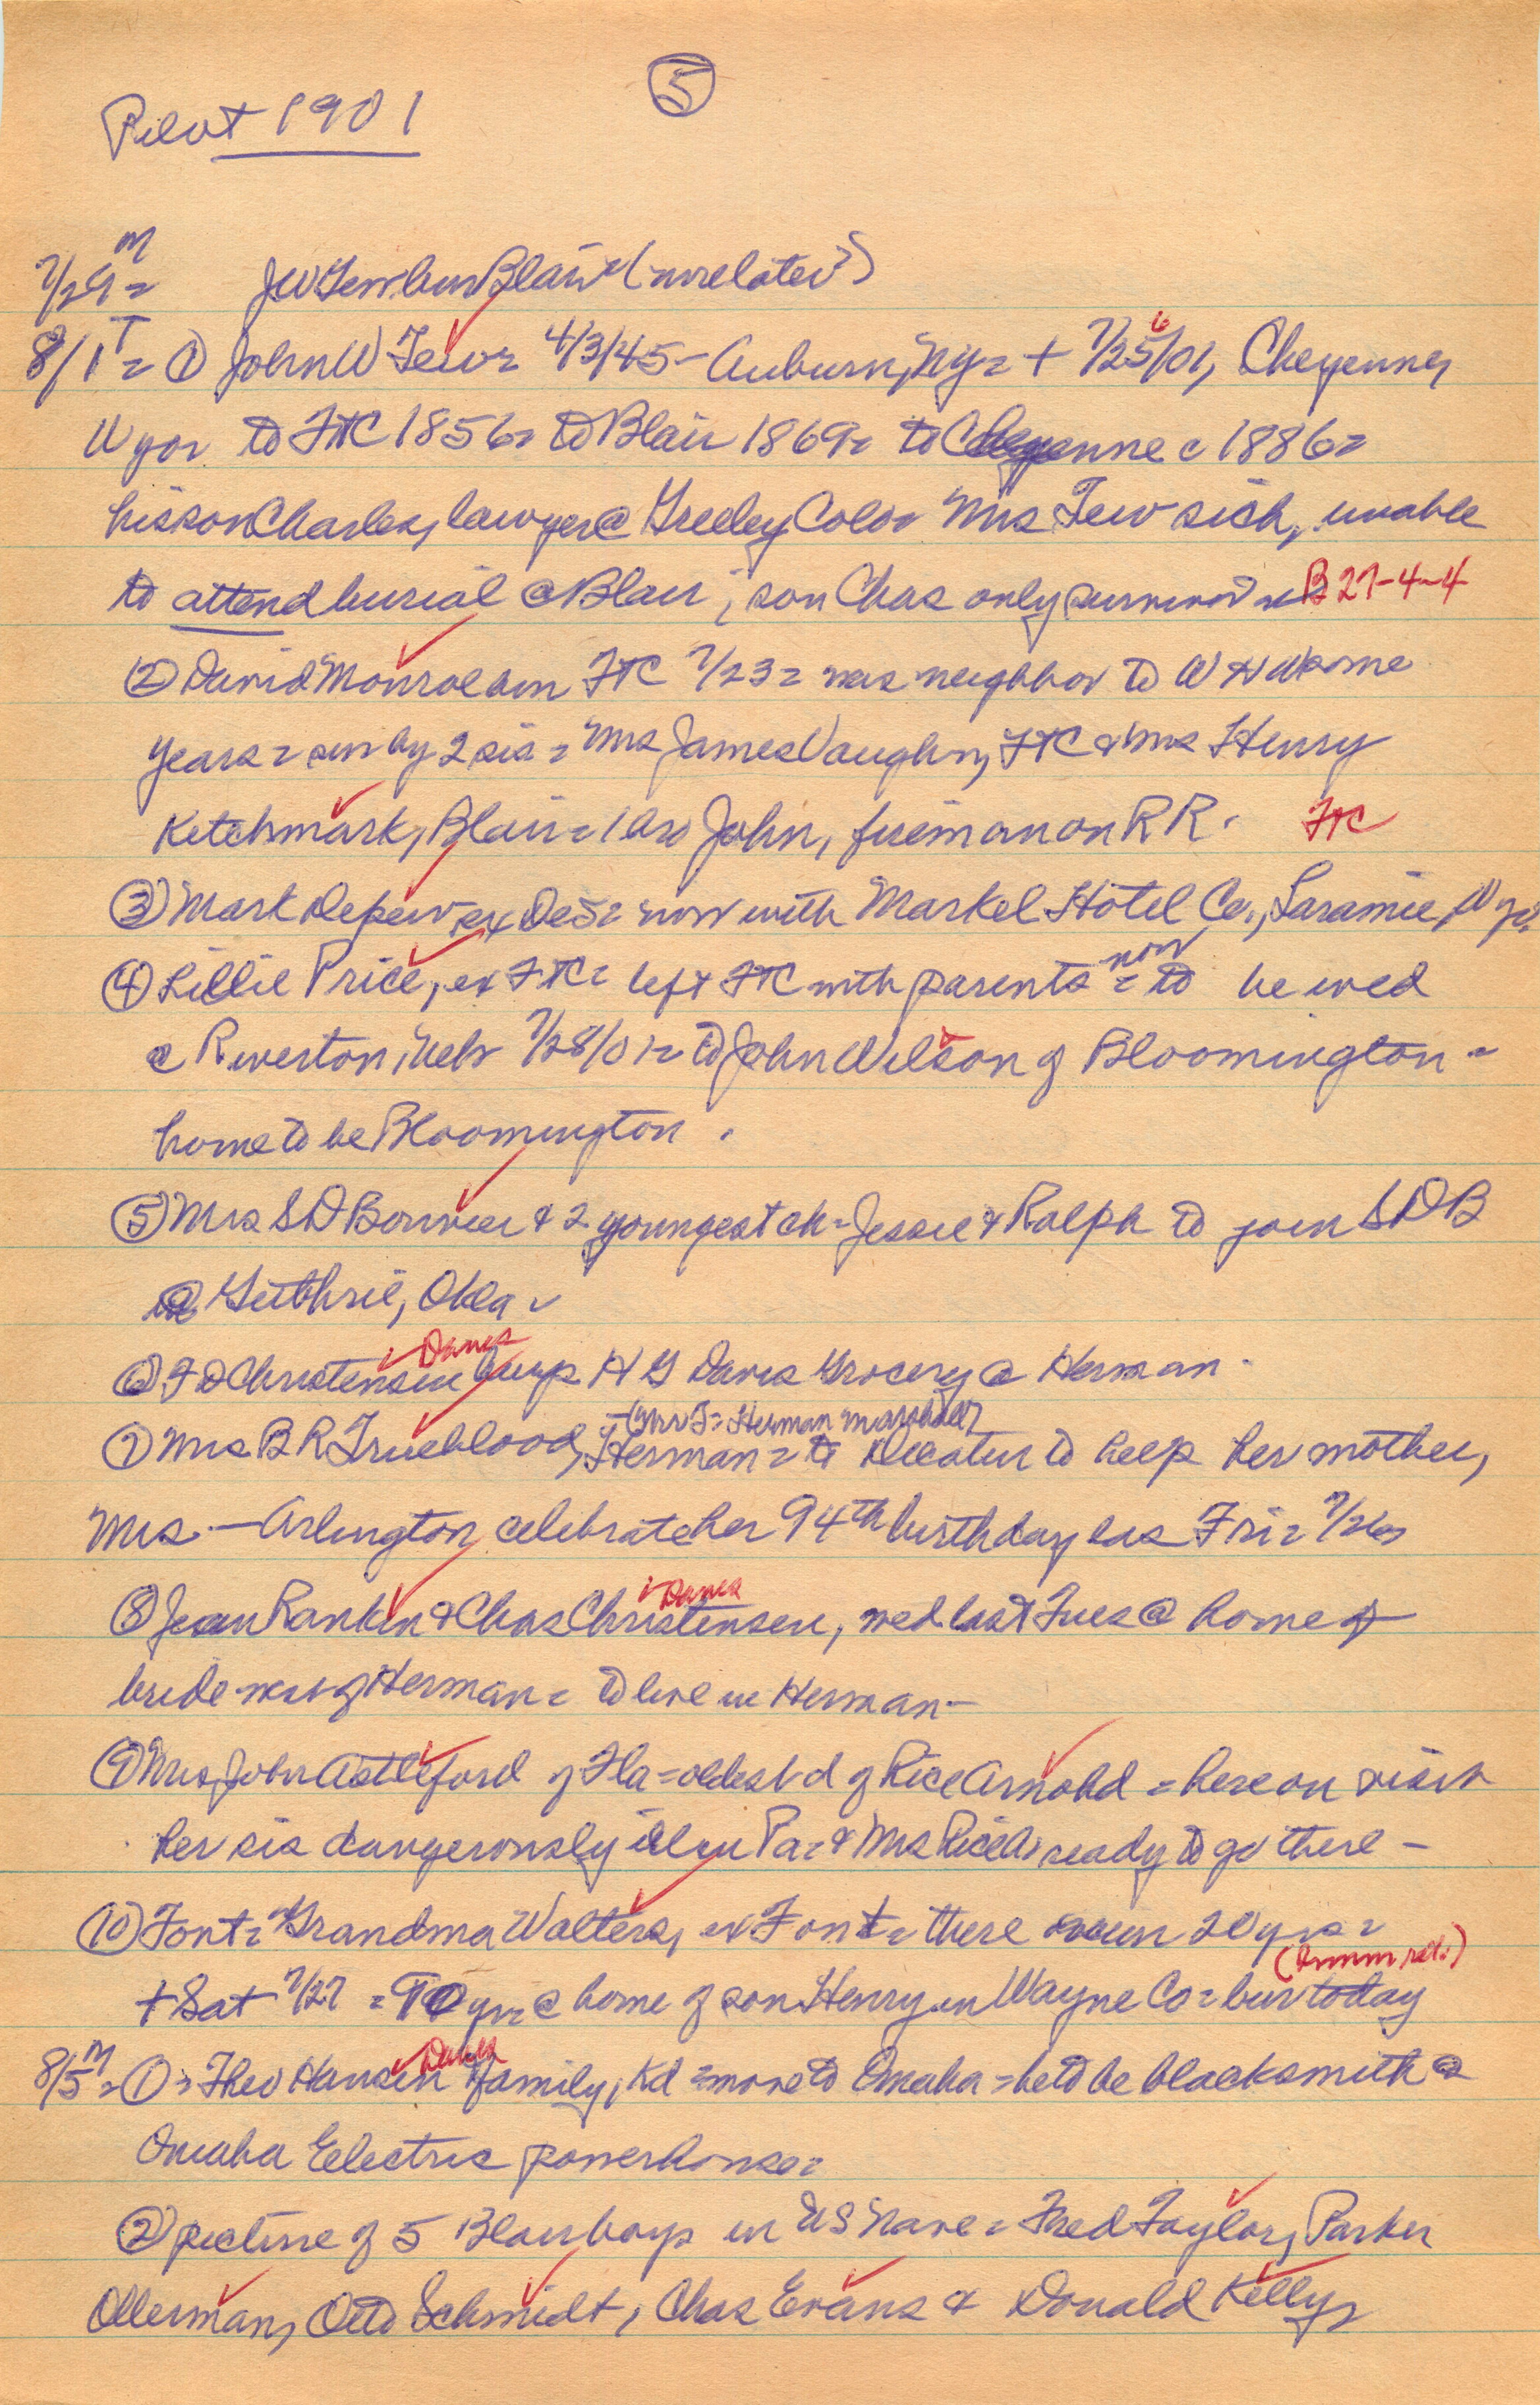 5
Pilot 1901
7/29 M = J W Tew bur Blair (unrelated?)
8/1 T = ① John W Tew = 4/3/45 - Auburn, Ny = + 7/25/01, Cheyenne,
6
Wyo = to FtC 1856 = to Blair 1869 = to Cheyenne c 1886 =
his son Charles, lawyer @ Greeley Colo = Mrs Tew sick, unable
to attend burial @ Blair; son Chas only survivor B 27-4-4
② David Monroe bur FtC 7/23 = was neighbor to W H W some
years = sur by 2 sis = Mrs James Vaughn, FtC & Mrs Henry
Ketchmark, Blair = 1 bro John, fireman on RR. FtC
③ Mark Depew, ex DeS = now with Markel Hotel Co., Laramie, Wyo.
④ Lillie Price, ex FtC = left FtC with parents = now to be wed
@ Riverton, Neb 7/28/01 = to John Wilson of Bloomington =
home to be Bloomington.
⑤ Mrs S D & 2 youngest ch = Jessie & Ralph to join S D B
@ Guthrie, Okla
⑥ F D Christensen buys H G Davis Grocery @ Herman
Danes
(Mr T = Herman marshall)
⑦ Mrs B R Trueblood, Herman = to Decatur to help her mother,
Mrs. — Arlington, celebrate her 94th birthday las Fri = 7/26
⑧ Jean Rankin & Chas Christensen, wed last Tues @ home of
Danes
bride west of Herman = to live in Herman -
⑨ Mrs John Astleford of Fla = oldest d of Rice Arnold = here on visit
her sis dangerously ill in Pa = & Mrs Rice A ready to go there -
⑩ Font = "Grandma" Walters, ex Font = there over 20 yrs =
+ Sat 7/27 = 90 yr = @ home of son Henry in Wayne Co = bur today
8/5 M = ① = Theo Hansen & family, Kd = move to Omaha = he to be blacksmith @
Danes
Omaha Electric powerhouse =
② picture of 5 Blair boys in US Nave = Fred Taylor, Parker
Ollerman, Otto Schmidt, Chas Evans & Donald Kelly,